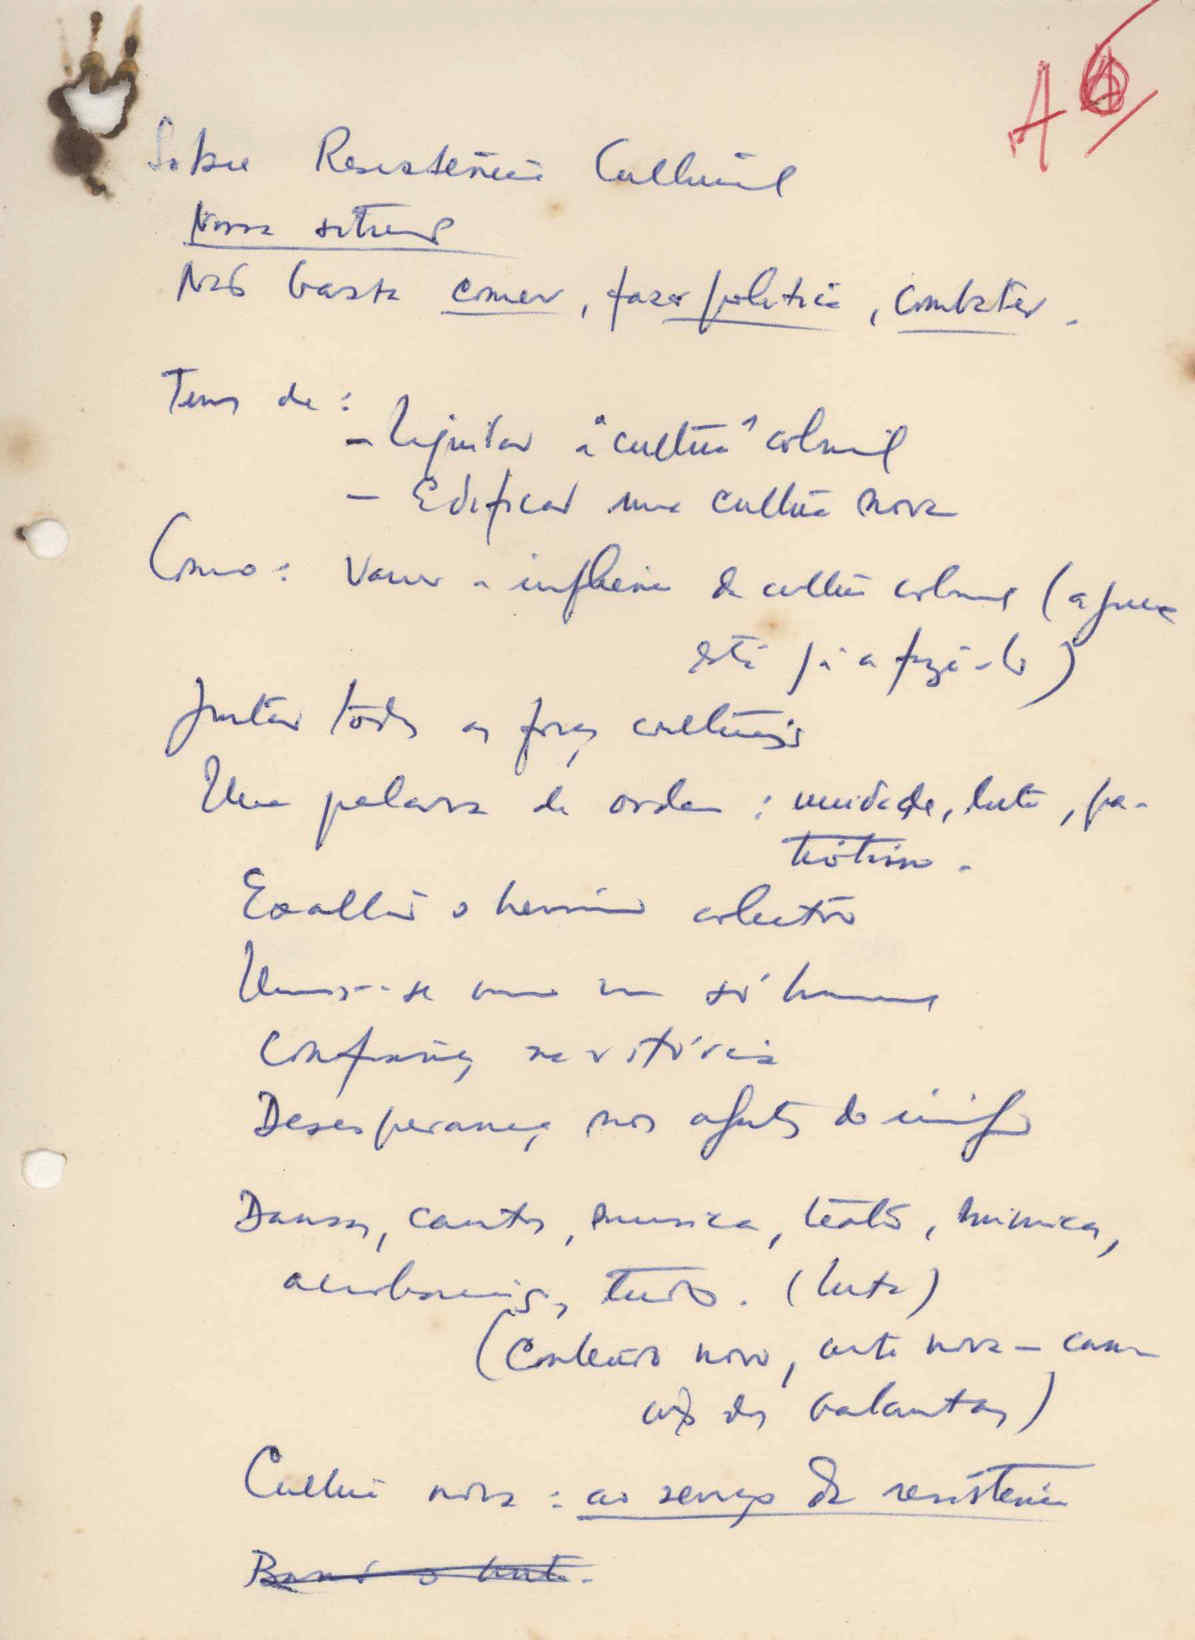 A
Sobre Resistência Cultural
Nossa situação
Não basta comer, fazer política, combater.
Temos de:
- Liquidar a "cultura" colonial
- Edificar uma cultura nova
Como: Vencer a influência da cultura colonial (a guerra
está já a fazê-lo)
Juntar todas as forças culturais
Uma palavra de ordem: unidade, luta, pa-
triotismo.
Exaltar o heroísmo colectivo
como um só homem
Confiança na vitória
Desesperança nos agentes do inimigo
Danças, cantos, música, teatro, mímicas,
acrobacias, tudo. (luta)
(Conteúdo novo, arte nova -
dos balantas)
Cultura nova: ao serviço da resistência